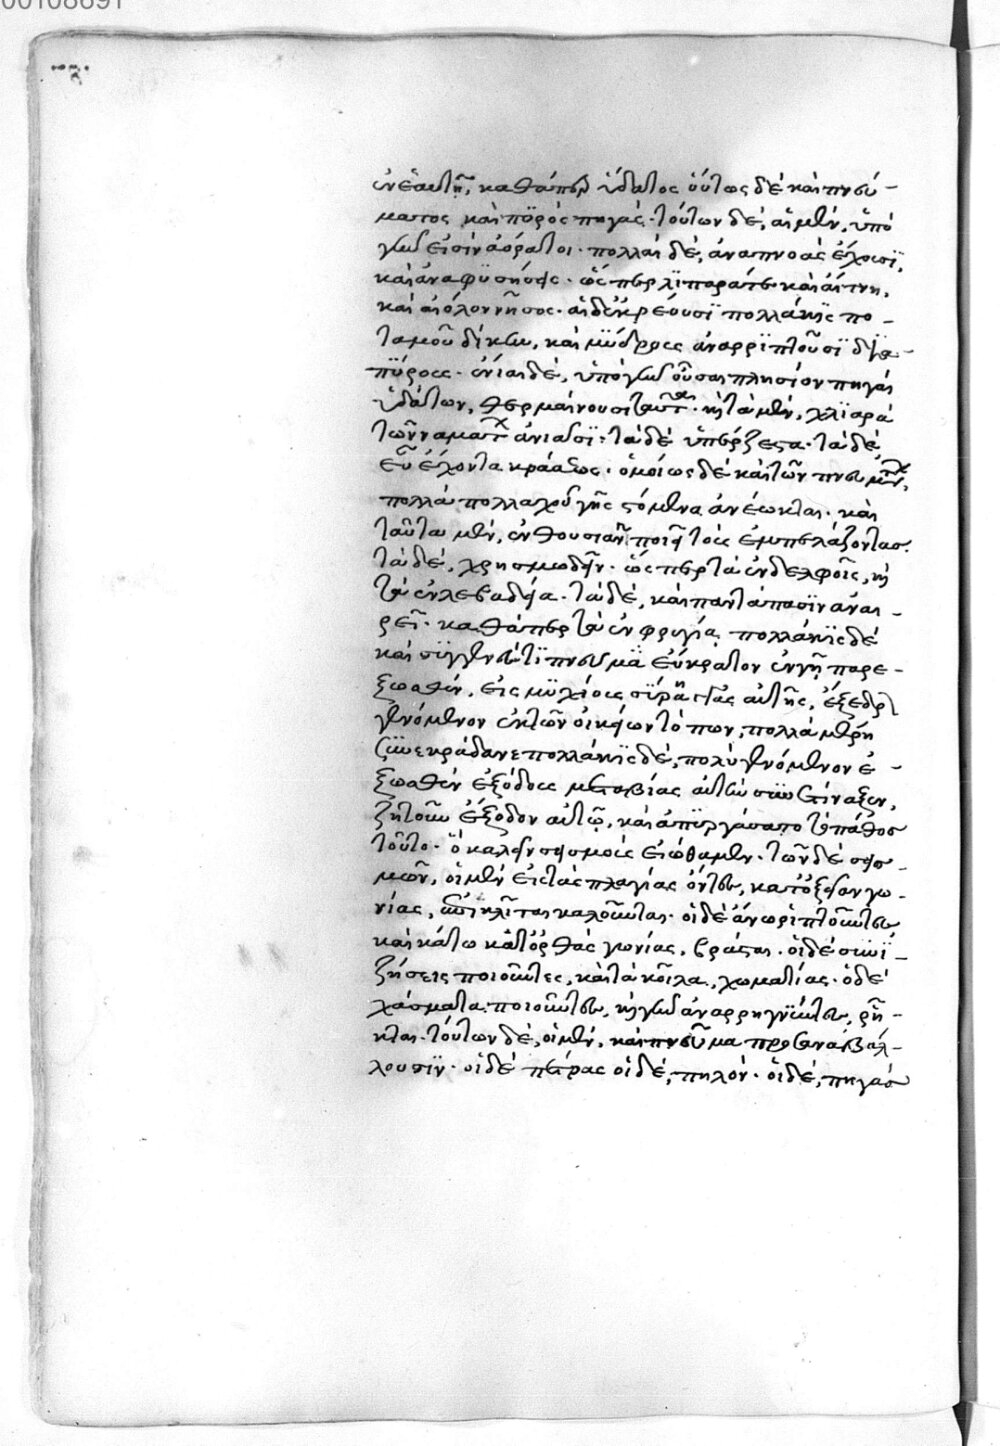 00108691
ἐν ἑαυτῇ, καθάπερ ὕδατος οὕτως δὲ καὶ πνεύ-
ματος καὶ πϋρὸς πηγάς· τούτων δὲ, αἱ μὲν, ὑπὸ
γῆν εἰσὶν ἀόρατοι· πολλαὶ δὲ, ἀναπνοὰς ἔχουσϊ,
καὶ ἀναφϋσήσεις· ὥς περ λϊπαρά τε καὶ αἴτνη,
καὶ αἰόλου νῆσος· αἱ δὲ καὶ ῥέουσϊ πολλάκϊς πο-
ταμοῦ δίκην, καὶ μϋδρους ἀναρρϊπτοῦσϊ δϊα-
πϋρους· ἔνιαι δὲ, ὑπὸ γῆν οὖσαι πλησίον πηγαί
ὑδάτων, θερμαίνουσι ταῦτα· καὶ τὰ μὲν, χλϊαρὰ
τῶν ναμάτων ἀνιᾶσϊ· τὰ δὲ ὑπέρζεστα· τὰ δὲ
εὖ ἔχοντα κράσεως· ὁμοίως δὲ καὶ τῶν πνευμάτων,
πολλὰ πολλαχοῦ γῆς στόμϊα ἀνέωκται· καὶ
ταῦτα μὲν, ἐνθουσιᾶν ποιεῖ τοὺς ἐμπελάζοντας·
τὰ δὲ, χρησμωδεῖν· ὥς περ τὰ ἐν δελφοῖς, καὶ
τὰ ἐν λεβαδεία· τὰ δὲ, καὶ παντάπασϊν ἀναι-
ρεῖ· καθάπερ τὰ ἐν φρυγία πολλάκϊς δὲ
καὶ συγγενές τϊ πνεῦμα εὔκρατον ἐν γῇ παρε-
ξωσθὲν, εἰς μϋχίους σήραγγας αὐτῆς, ἔξεδρον
γενόμενον ἐκ τῶν οἰκείων τόπων, πολλὰ μέρη
ζυνεκράδανε πολλάκϊς δὲ, πολὺ γενόμενον ἐ-
ξωθὲν ἐξόδους μετὰ βίας αὐτὴν συνετίναξεν,
ζητοῦν ἔξοδον αὑτῷ, καὶ ἀπϋργάσατο τὸ πάθος
τοῦτο· ὃ καλεῖν σεισμοὺς εἰώθαμεν· τῶν δὲ σεισ-
μῶν, οἱ μὲν εἰς τὰς πλαγίας ὄντες, κατ᾽ ὀξείαν γω-
νίας, ἐπικλῖται καλοῦνται· οἱ δὲ ἄνω ῥϊπτοῦντες
καὶ κάτω κατ᾽ ὀρθὰς γωνίας, βράσται· οἱ δὲ συνϊ-
ζήσεις ποιοῦντες, καὶ τὰ κοῖλα, χωματίας· ὁ δὲ
χάσματα ποιοῦντες, καὶ γῆν ἀναρρηγνύντες, ρῆ-
κται· τούτων δὲ, οἱ μὲν, καὶ πνεῦμα προσαναβάλ-
λουσϊν· οἱ δὲ πέτρας οἱ δὲ, πηλόν· οἱ δὲ, πηγάς